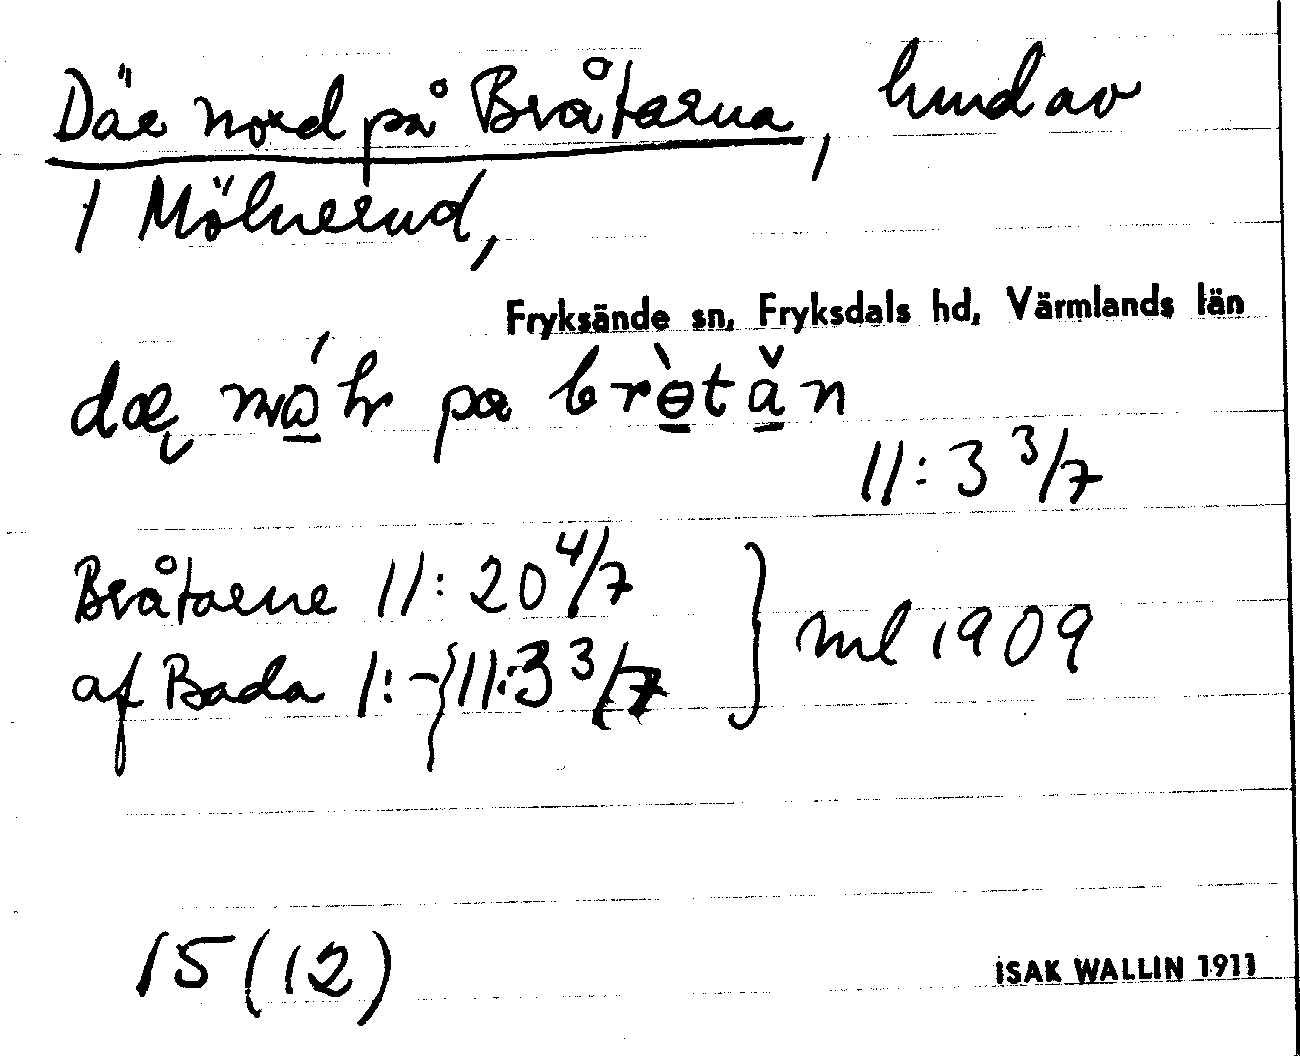 Där nord på Bråtarna, hmd av
1 Mölnerud,
Fryksände sn, Fryksdals hd, Värmlands län
pa
11: 3 3/7
Bråtarne 11: 20 4/7
af Bada 1:- 11:3 3/7 } ml 1909
15 (12)
ISAK WALLIN 1911